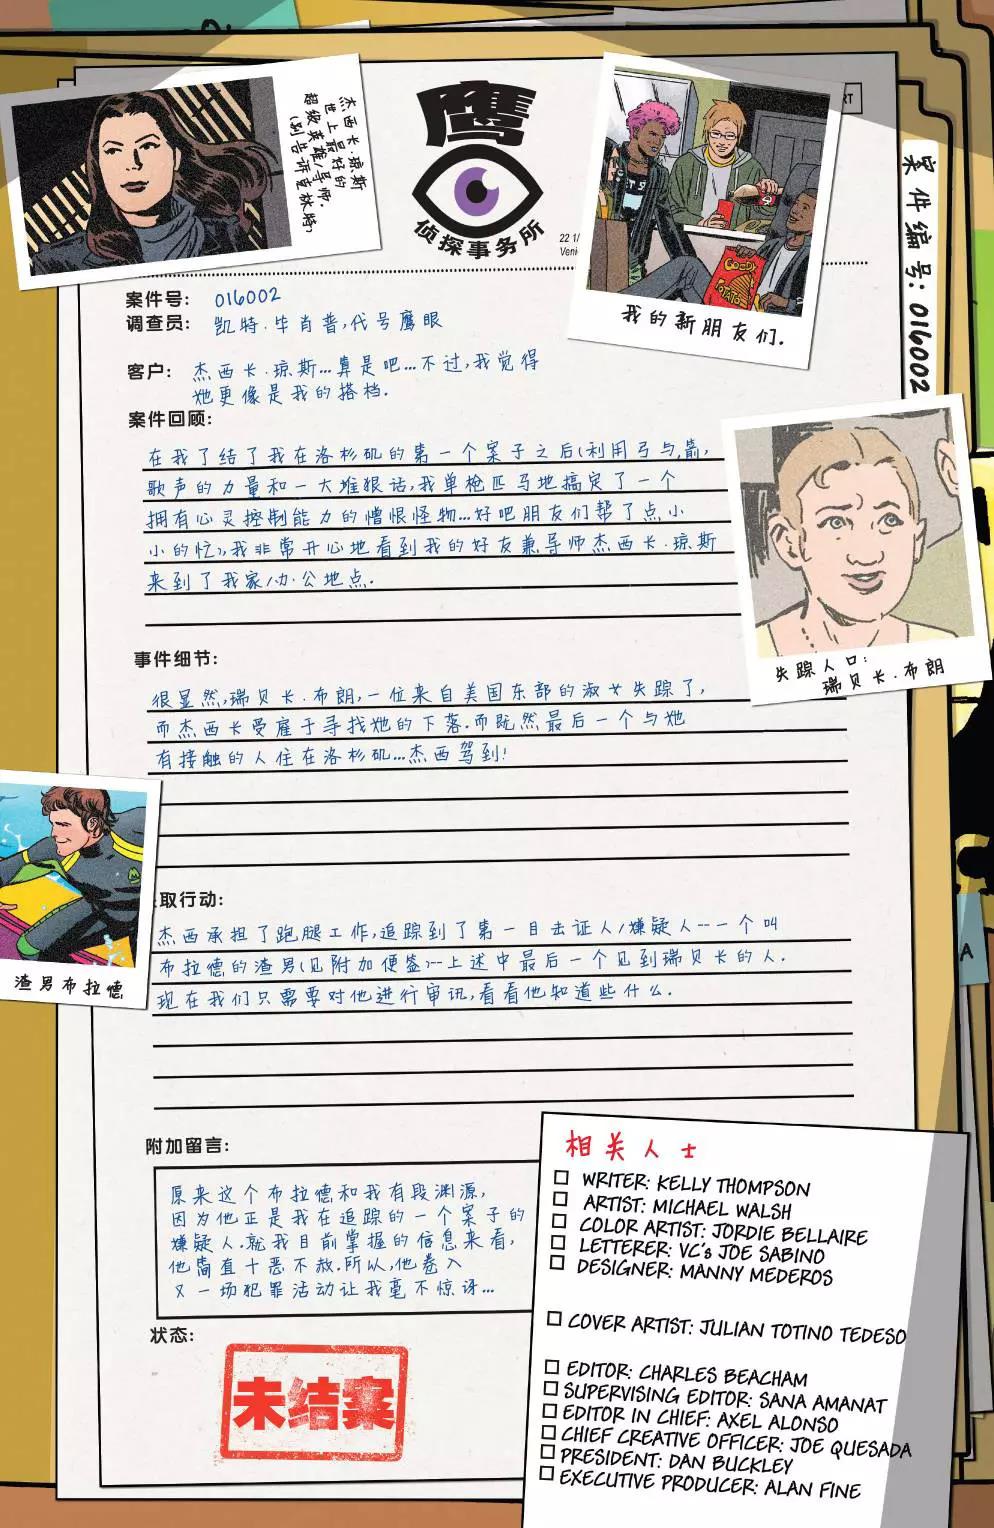 杰西卡·琼斯
世上最好的
超级英雄/导师.
(别告诉克林特)
鹰
侦探事务所
22 1/
Veni
RT
我的新朋友们.
案件编号: 016002
案件号: 016002
调查员: 凯特·毕肖普,代号鹰眼
客户: 杰西卡·琼斯...算是吧...不过,我觉得
她更像是我的搭档.
案件回顾:
在我了结了我在洛杉矶的第一个案子之后(利用弓与箭,
歌声的力量和一大堆狠话,我单枪匹马地搞定了一个
拥有心灵控制能力的憎恨怪物...好吧朋友们帮了点小
小的忙),我非常开心地看到我的好友兼导师杰西卡·琼斯
来到了我家/办公地点.
失踪人口:
瑞贝卡·布朗
事件细节:
很显然,瑞贝卡·布朗,一位来自美国东部的淑女失踪了,
而杰西卡受雇于寻找她的下落.而既然最后一个与她
有接触的人住在洛杉矶...杰西驾到!
渣男布拉德
取行动:
杰西承担了跑腿工作,追踪到了第一目击证人/嫌疑人--一个叫
布拉德的渣男(见附加便签)--上述中最后一个见到瑞贝卡的人.
现在我们只需要对他进行审讯,看看他知道些什么.
A
附加留言:
原来这个布拉德和我有段渊源,
因为他正是我在追踪的一个案子的
嫌疑人.就我目前掌握的信息来看,
他简直十恶不赦.所以,他卷入
又一场犯罪活动让我毫不惊讶...
状态:
未结案
相关人士
WRITER: KELLY THOMPSON
ARTIST: MICHAEL WALSH
COLOR ARTIST: JORDIE BELLAIRE
LETTERER: VC's JOE SABINO
DESIGNER: MANNY MEDEROS
COVER ARTIST: JULIAN TOTINO TEDESO
EDITOR: CHARLES BEACHAM
SUPERVISING EDITOR: SANA AMANAT
EDITOR IN CHIEF: AXEL ALONSO
CHIEF CREATIVE OFFICER: JOE QUESADA
PRESIDENT: DAN BUCKLEY
EXECUTIVE PRODUCER: ALAN FINE